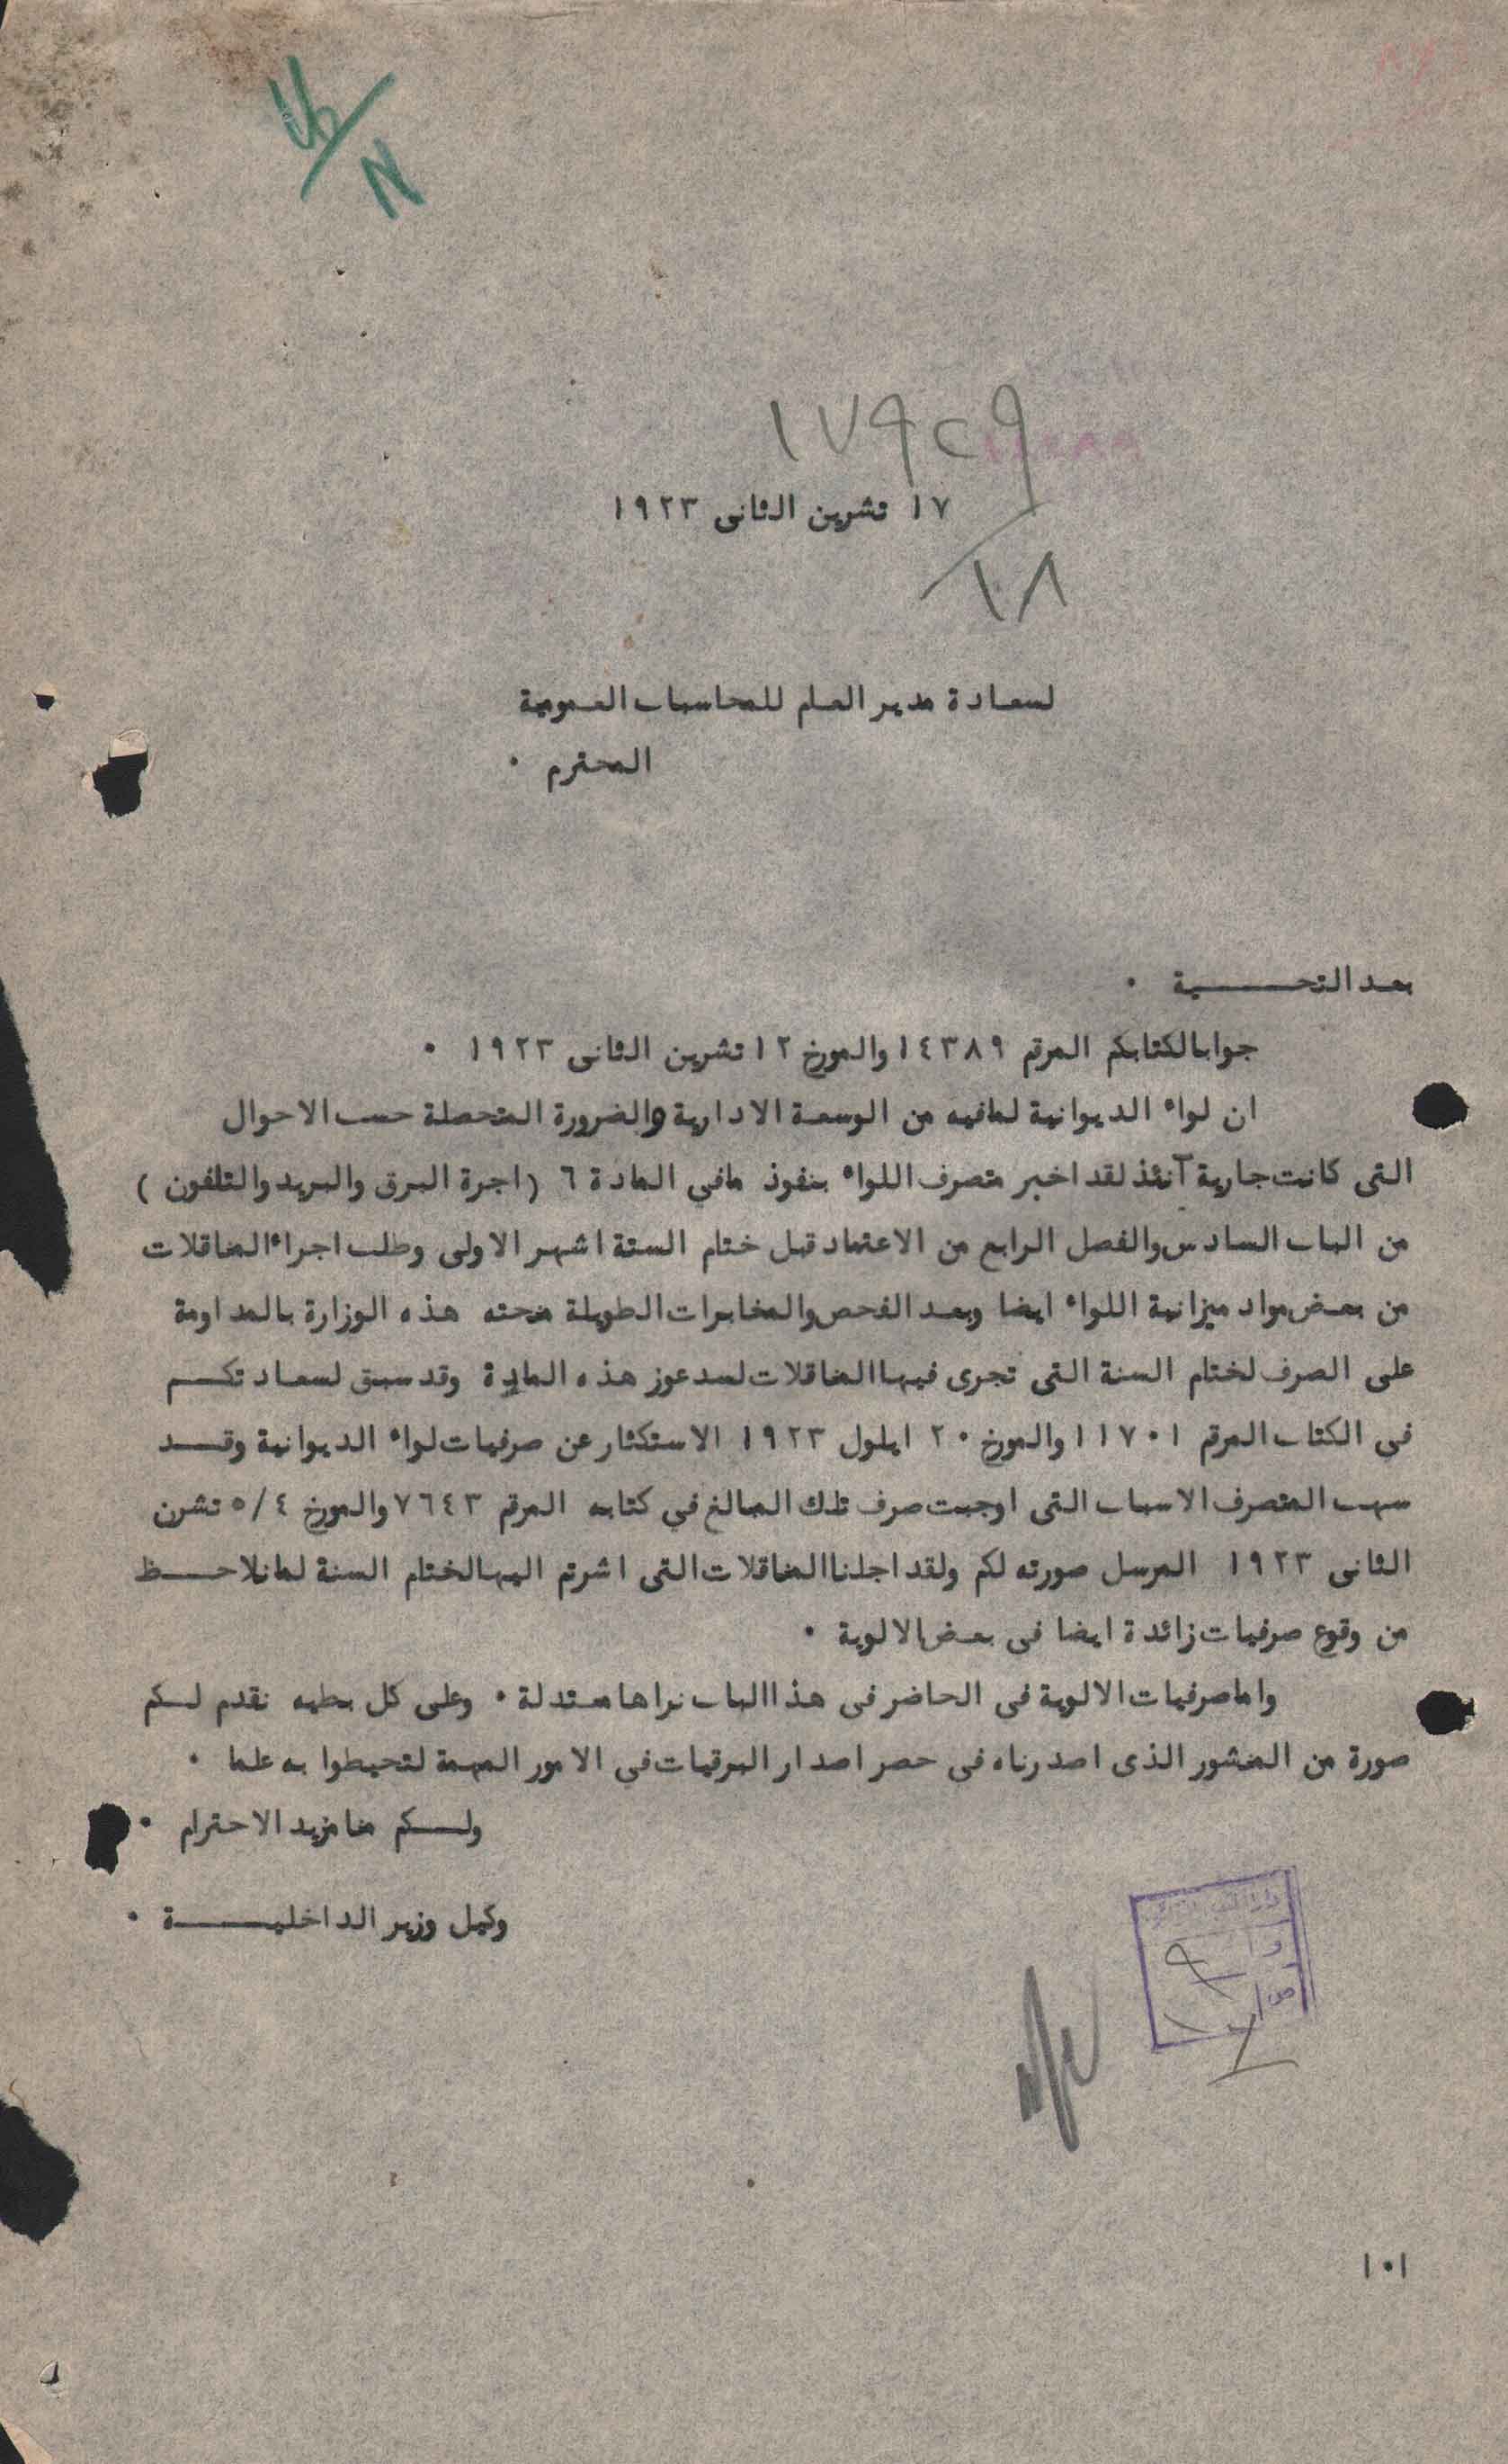 ١٧٩٢٩
١٧ تشرين الثانى ١٩٢٣
١٨
لسعادة مدير العام للمحاسبات العمومية
المحترم ٠
بعد التحـــــية ٠
جوابالكتابكم المرقم ١٤٣٨٩ والمورخ ١٢ تشرين الثانى ١٩٢٣ ٠
ان لواء الديوانية لمافيه من الوسعة الادارية والضرورة المتحصلة حسب الاحوال
التى كانت جارية آنئذ لقد اخبر متصرف اللواء بنفوذ مافي المادة ٦ (اجرة البرق والبريد والتلفون )
من الباب السادس والفصل الرابع من الاعتماد قبل ختام الستة اشهر الاولى وطلب اجراء المناقلات
من بعض مواد ميزانية اللواء ايضا وبعد الفحص والمخابرات الطويلة منحته هذه الوزارة بالمداومة
على الصرف لختام السنة التى تجرى فيها المناقلات لسد عوز هذه المادة وقد سبق لسعادتكـــم
فى الكتاب المرقم ١١٧٠١ والمورخ ٢٠ ايلول ١٩٢٣ الاستكثار عن صرفيات لواء الديوانية وقـــد
سبب المتصرف الاسباب التى اوجبت صرف تلك المبالغ في كتابه المرقم ٧٦٤٣ والمورخ ٥/٤ تشرن
الثانى ١٩٢٣ المرسل صورته لكم ولقد اجلنا المناقلات التى اشرتم اليها لختام السنة لمانلاحـــظ
من وقوع صرفيات زائدة ايضا فى بعض الالوية ٠
واما صرفيات الالوية فى الحاضر فى هذا الباب نراها معتدلة ٠ وعلى كل بطيه نقدم لـــكم
صورة من المنشور الذى اصدرناه فى حصر اصدار البرقيات في الامور المهمة لتحيطوا به علما ٠
ولـــكم منا مزيد الاحترام ٠
وكيل وزير الداخليـــــة ٠
١٠١